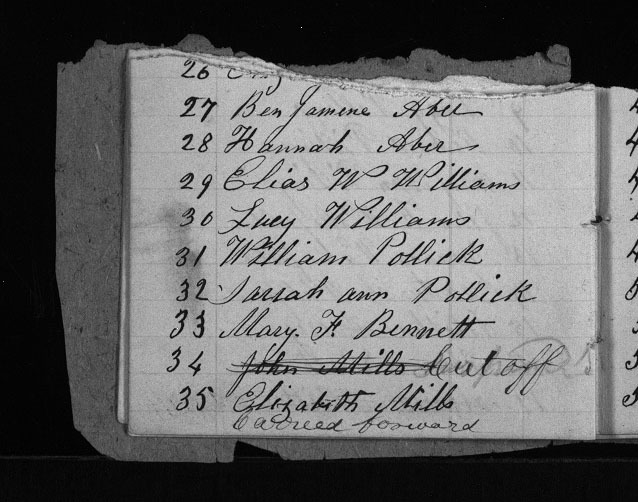 26
27 Benjamine Aber
28 Hannah Aber
29 Elias W Williams
30 Lucy Williams
31 William Pollick
32 Sarrah ann Pollick
33 Mary. F. Bennett
34 John Mills Cut off
35 Elizabeth Mills
Carreed forward